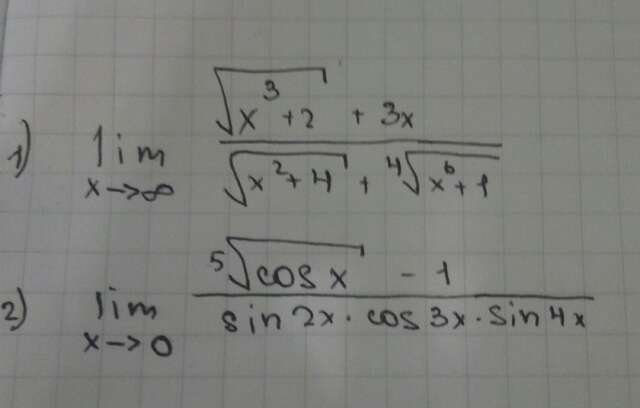 1) lim x→∞ (√(x³+2) + 3x) / (√(x²+4) + ⁴√(x⁶+1))
2) lim x→0 (⁵√(cos x) - 1) / (sin 2x · cos 3x · sin 4x)